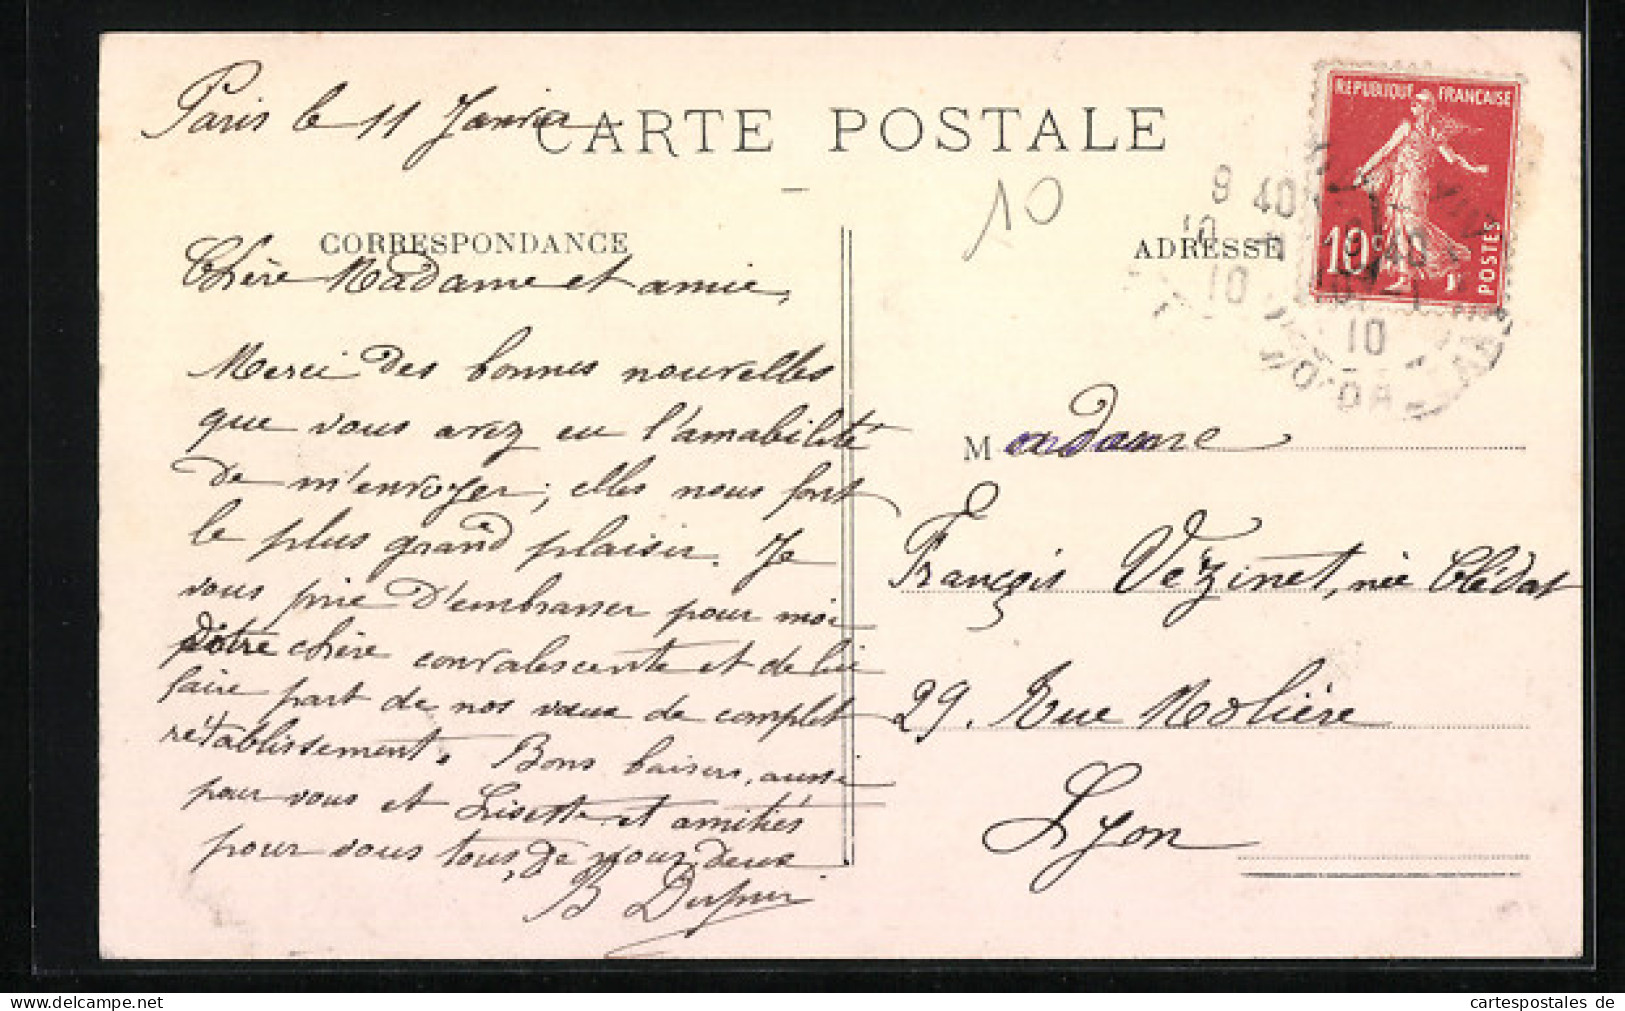 Paris le 11 Janvier
CARTE POSTALE
10
CORRESPONDANCE
Chère Madame et amie,
Merci des bonnes nouvelles
que vous avez eu l'amabilité
de m'envoyer; elles nous font
le plus grand plaisir. Je
vous prie d'embrasser pour moi
votre chère convalescente et de lui
faire part de nos vœux de complet
rétablissement. Bons baisers, aussi
pour vous et Lisette et amitiés
pour vous tous, de nous deux
B Dupui
ADRESSE
REPUBLIQUE FRANÇAISE
10c
POSTES
9 40
10
9 40
10
Madame
François Vézinet, née Clédat
29. Rue Molière
Lyon
cartespostales de